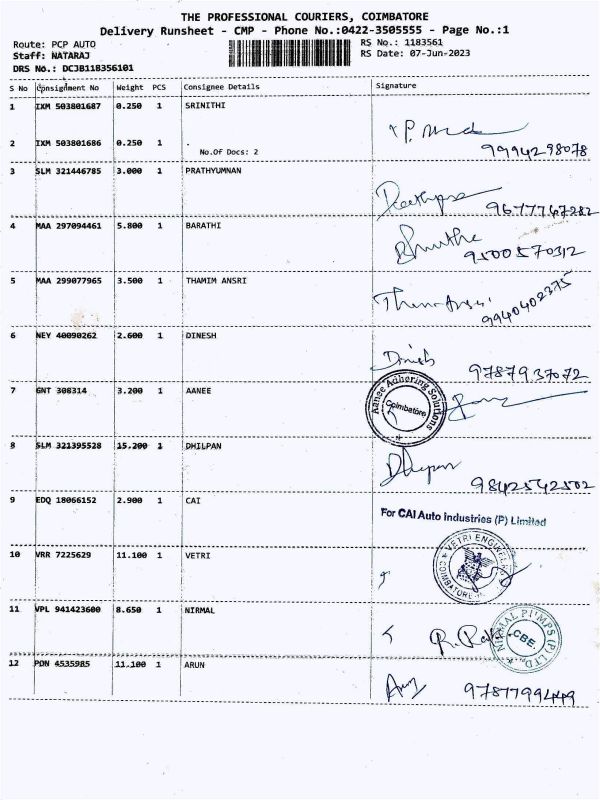 THE PROFESSIONAL COURIERS, COIMBATORE
Delivery Runsheet - CMP - Phone No.:0422-3505555 - Page No.:1
Route: PCP AUTO
RS No.: 1183561
Staff: NATARAJ
RS Date: 07-Jun-2023
DRS No.: DCJB11B356101
S No Consignment No Weight PCS Consignee Details Signature
1 IXM 503801687 0.250 1 SRINITHI
2 IXM 503801686 0.250 1 .
No.Of Docs: 2
9994298078
3 SLM 321446785 3.000 1 PRATHYUMNAN
9677747282
4 MAA 297094461 5.800 1 BARATHI
9500570312
5 MAA 299077965 3.500 1 THAMIM ANSRI
9940402375
6 NEY 40090262 2.600 1 DINESH
Dinish
9787937072
7 GNT 308314 3.200 1 AANEE
Aanee Adhering Solutions
Coimbatore
8 SLM 321395528 15.200 1 DHILPAN
9842542502
9 EDQ 18066152 2.900 1 CAI
For CAI Auto industries (P) Limited
10 VRR 7225629 11.100 1 VETRI
VETRI
COIMBATORE
11 VPL 941423600 8.650 1 NIRMAL
NIRMAL PUMPS (P) LTD.
CBE.
12 PDN 4535985 11.100 1 ARUN